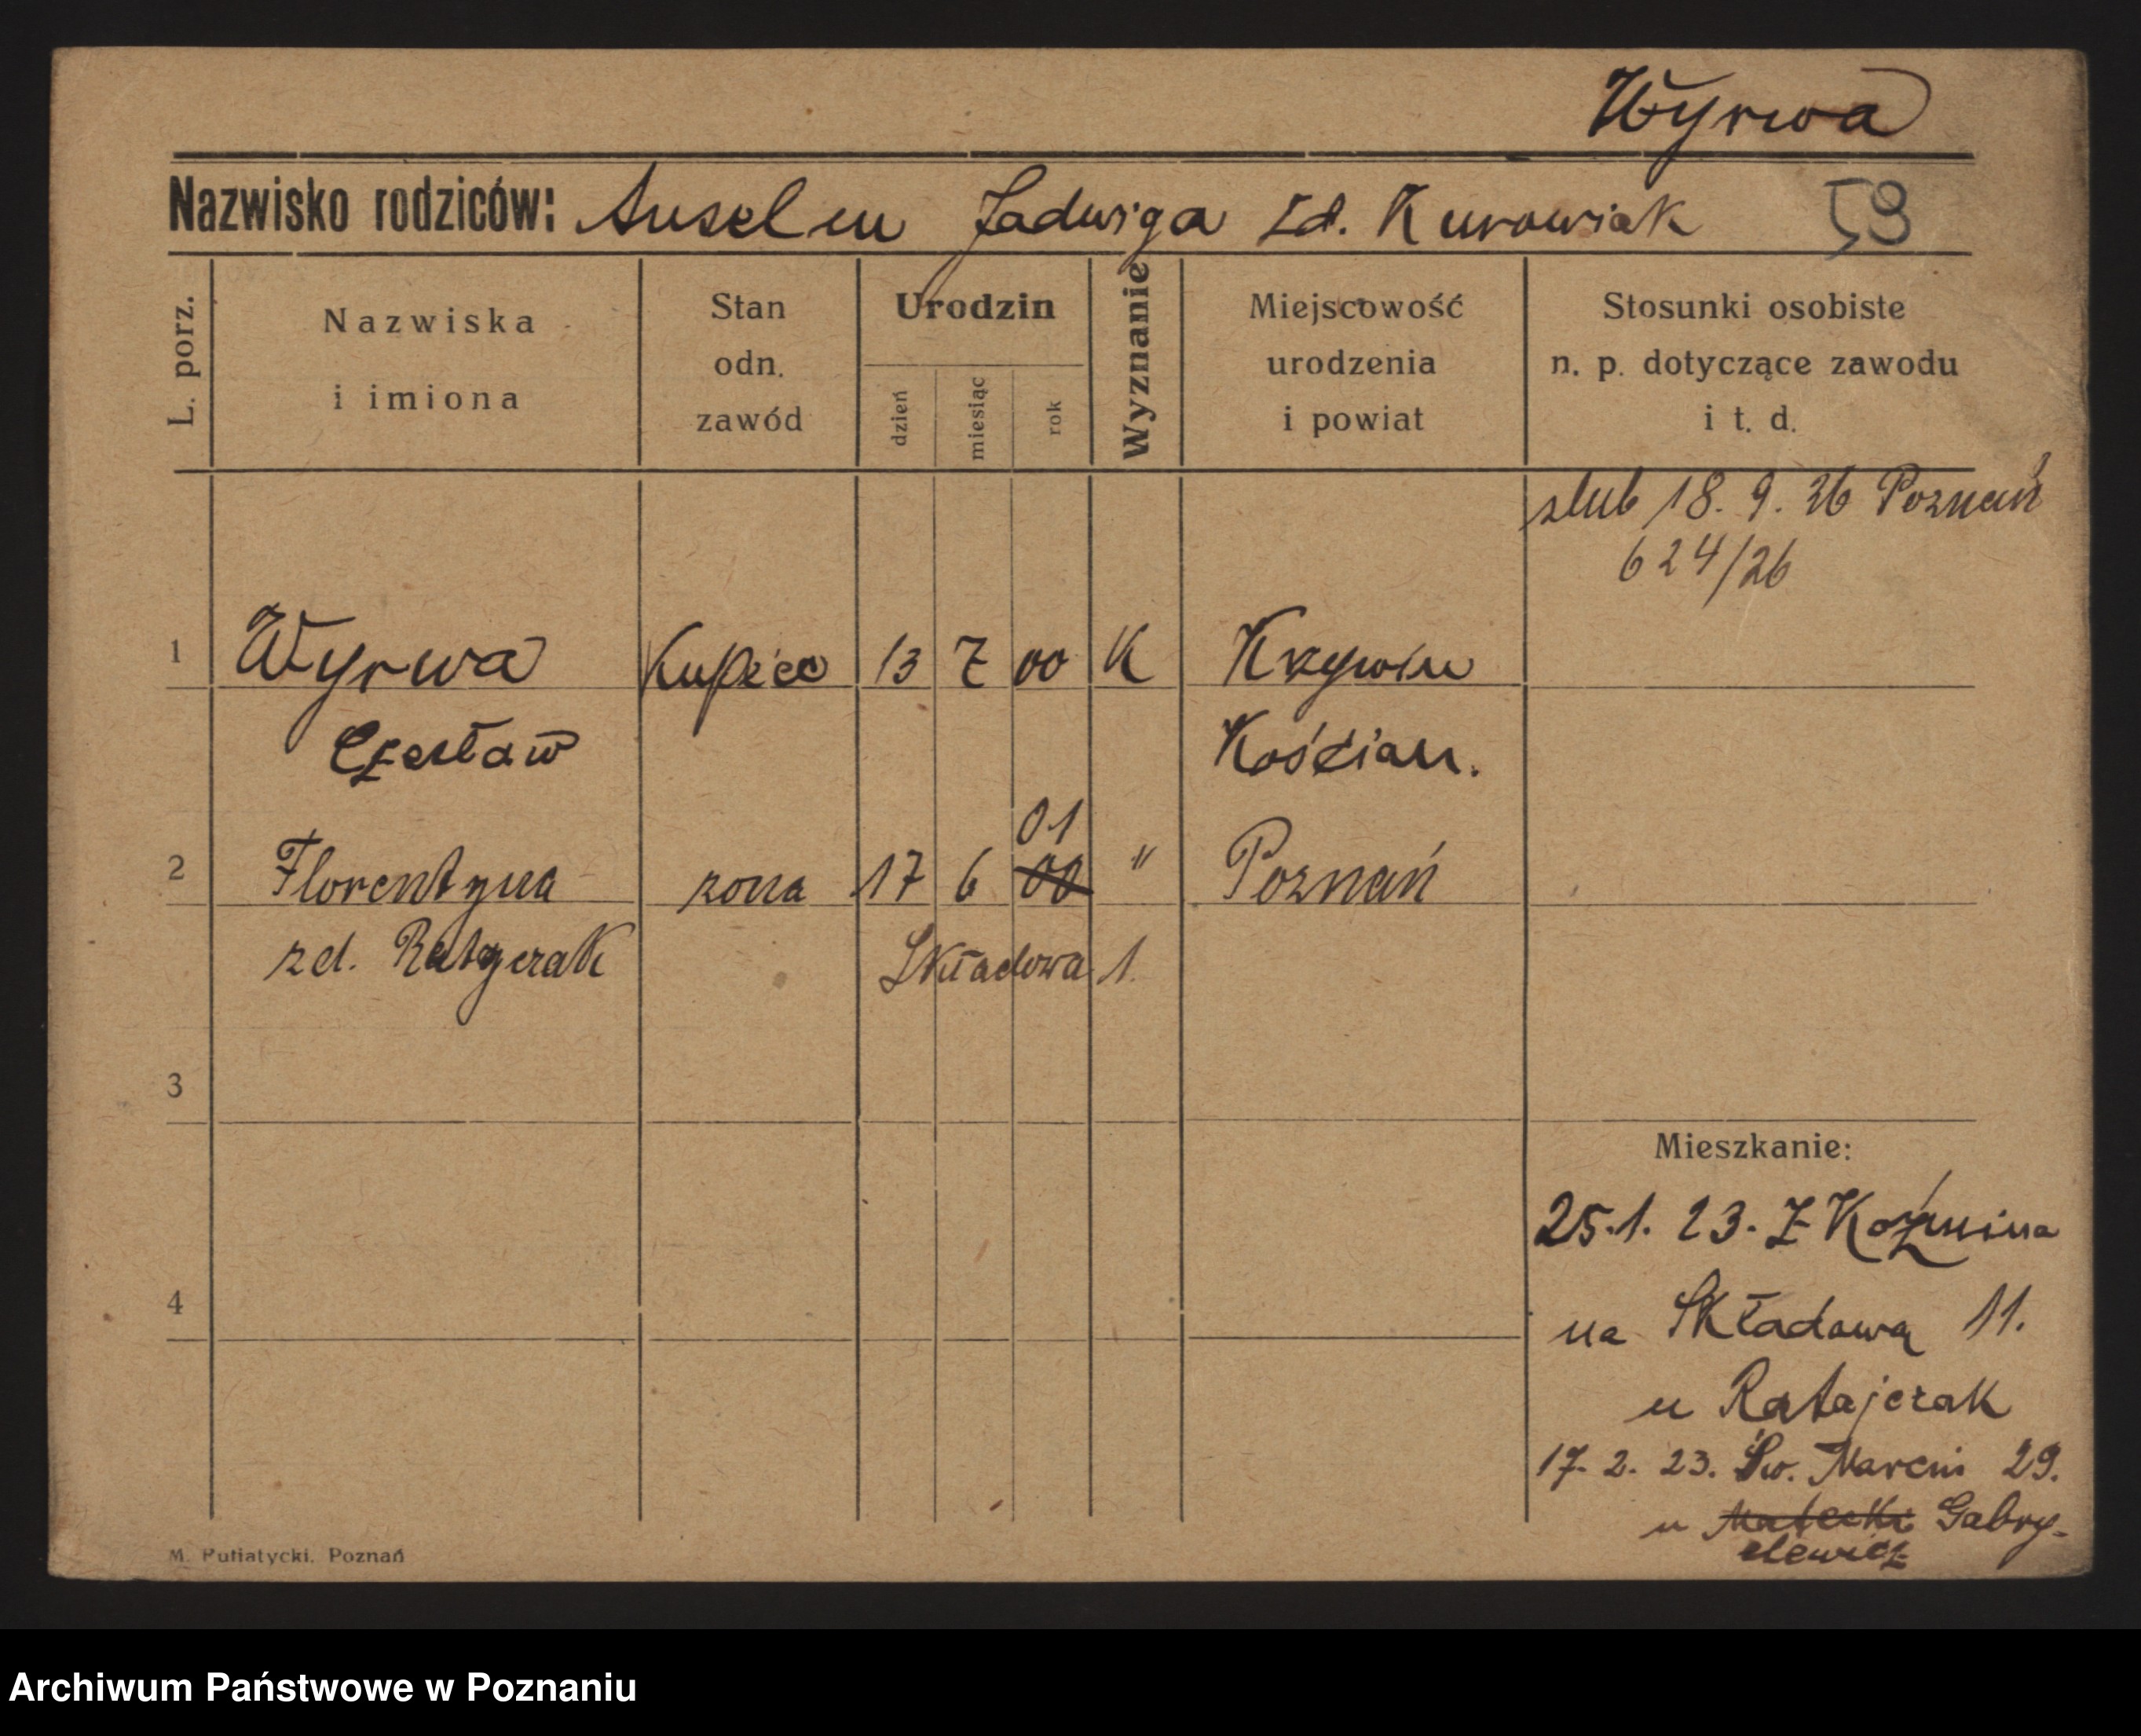 Wyrwa
Nazwisko rodziców: Anselm Jadwiga zd. Kurowiak 59
L. porz.
Nazwiska i imiona
Stan odn. zawód
Urodzin
dzień miesiąc rok
Wyznanie
Miejscowość urodzenia i powiat
Stosunki osobiste n. p. dotyczące zawodu i t. d.
slub 18. 9. 26 Poznań
624/26
1 Wyrwa Kupiec 13 7 00 K Krzywin
Czesław Kościan.
01
2 Florentyna zona 17 6 00 " Poznań
zd. Składowa 1.
3
Mieszkanie:
25.1. 23. Z Koźmina
4
na Składową 11.
u Ratajczak
17. 2. 23. Św. Marcin 29.
u Gabry-
elewicz
M. Putiatycki. Poznań
Archiwum Państwowe w Poznaniu